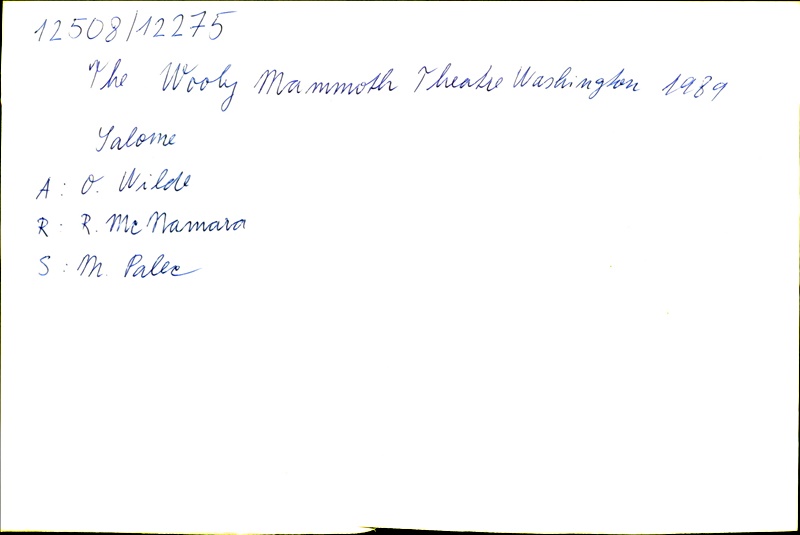 12508/12275
The Wooly Mammoth Theatre Washington 1989
Salome
A: O. Wilde
R: R. McNamara
S: M. Palec